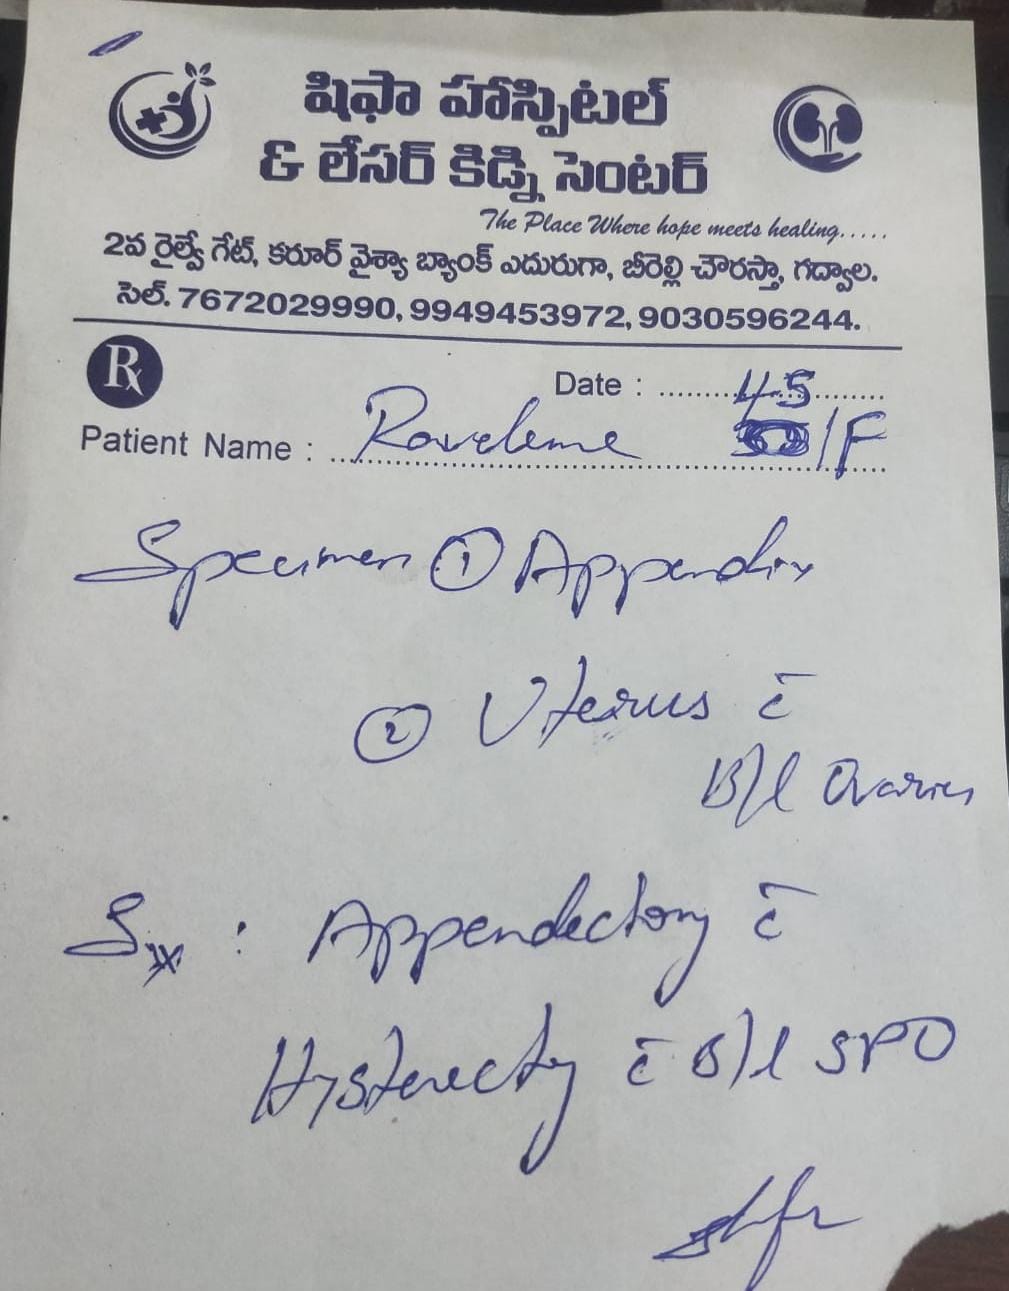 షిఫా హాస్పిటల్
& లేసర్ కిడ్ని సెంటర్
The Place Where hope meets healing.....
2వ రైల్వే గేట్, కరూర్ వైశ్యా బ్యాంక్ ఎదురుగా, బీరెల్లి చౌరస్తా, గద్వాల.
సెల్. 7672029990, 9949453972, 9030596244.
Rx
Date : 45
Patient Name : /F
Specimen ① Appendix
② Uterus c̄
B/l Ovaries
Sx : Appendectomy c̄
Hysterecty c̄ B/l SPO